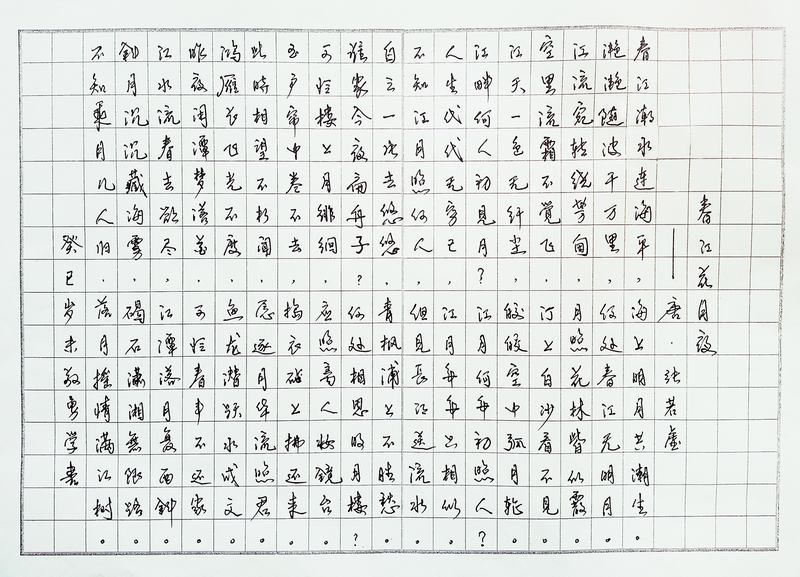 春江花月夜
——唐·张若虚
春江潮水连海平，海上明月共潮生。
滟滟随波千万里，何处春江无月明。
江流宛转绕芳甸，月照花林皆似霰。
空里流霜不觉飞，汀上白沙看不见。
江天一色无纤尘，皎皎空中孤月轮。
江畔何人初见月？江月何年初照人？
人生代代无穷已，江月年年只相似。
不知江月照何人，但见长江送流水。
白云一片去悠悠，青枫浦上不胜愁。
谁家今夜扁舟子？何处相思明月楼？
可怜楼上月徘徊，应照离人妆镜台。
玉户帘中卷不去，捣衣砧上拂还来。
此时相望不相闻，愿逐月华流照君。
鸿雁长飞光不度，鱼龙潜跃水成文。
昨夜闲潭梦落花，可怜春半不还家。
江水流春去欲尽，江潭落月复西斜。
斜月沉沉藏海雾，碣石潇湘無限路。
不知乘月几人归，落月摇情满江树。
癸巳岁末敬勇学書